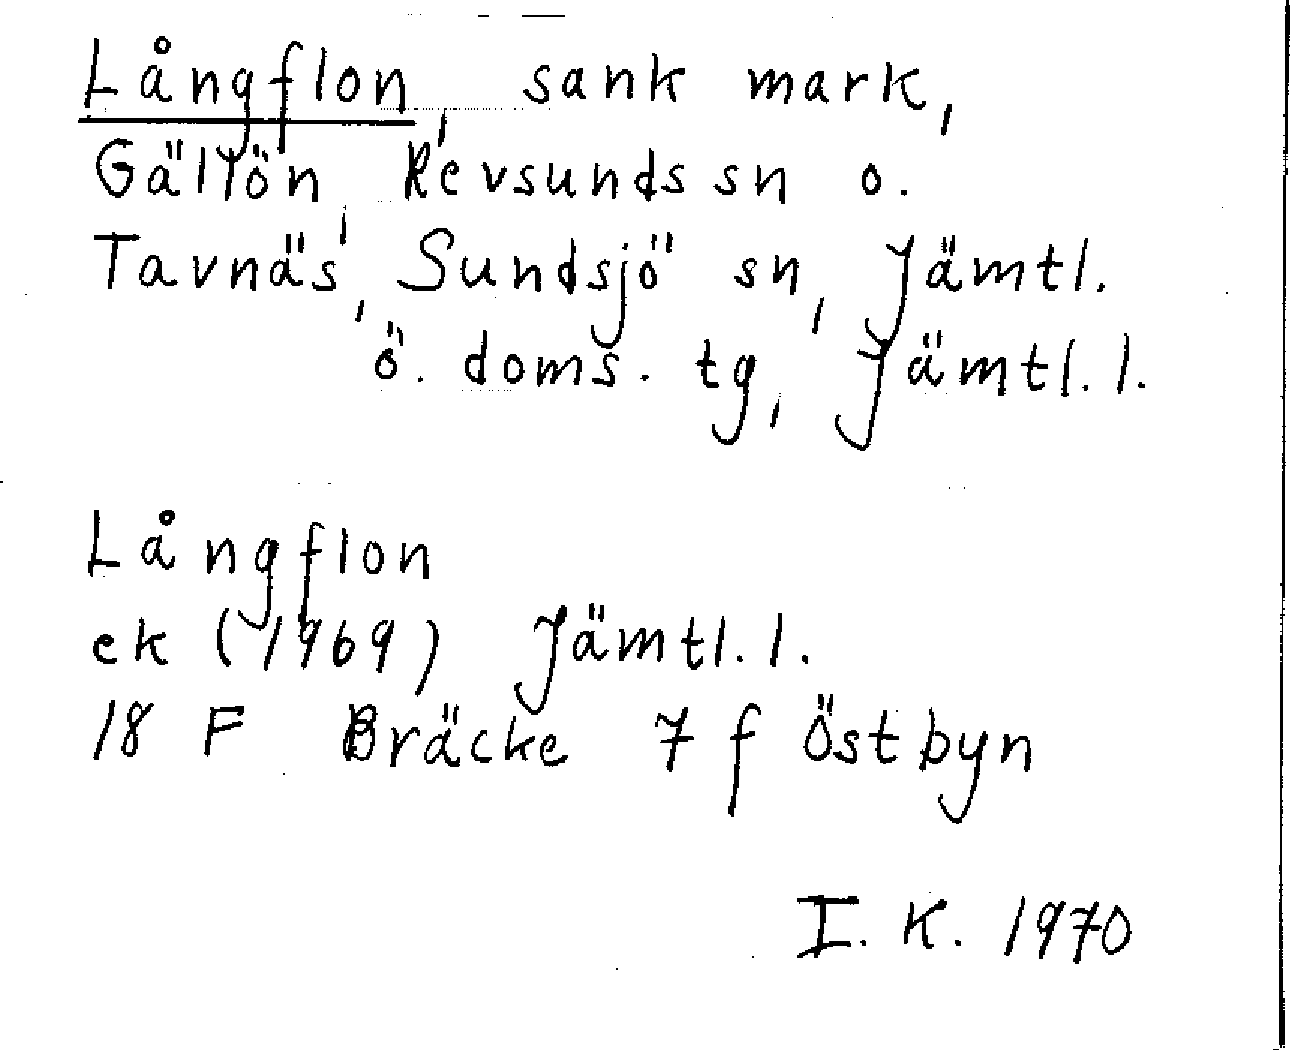 Långflon, sank mark,
Gällön, Revsunds sn o.
Tavnäs, Sundsjö sn, Jämtl.
ö. doms. tg, Jämtl. l.
Långflon
ek (1969) Jämtl. l.
18 F Bräcke 7 f Östbyn
I. K. 1970